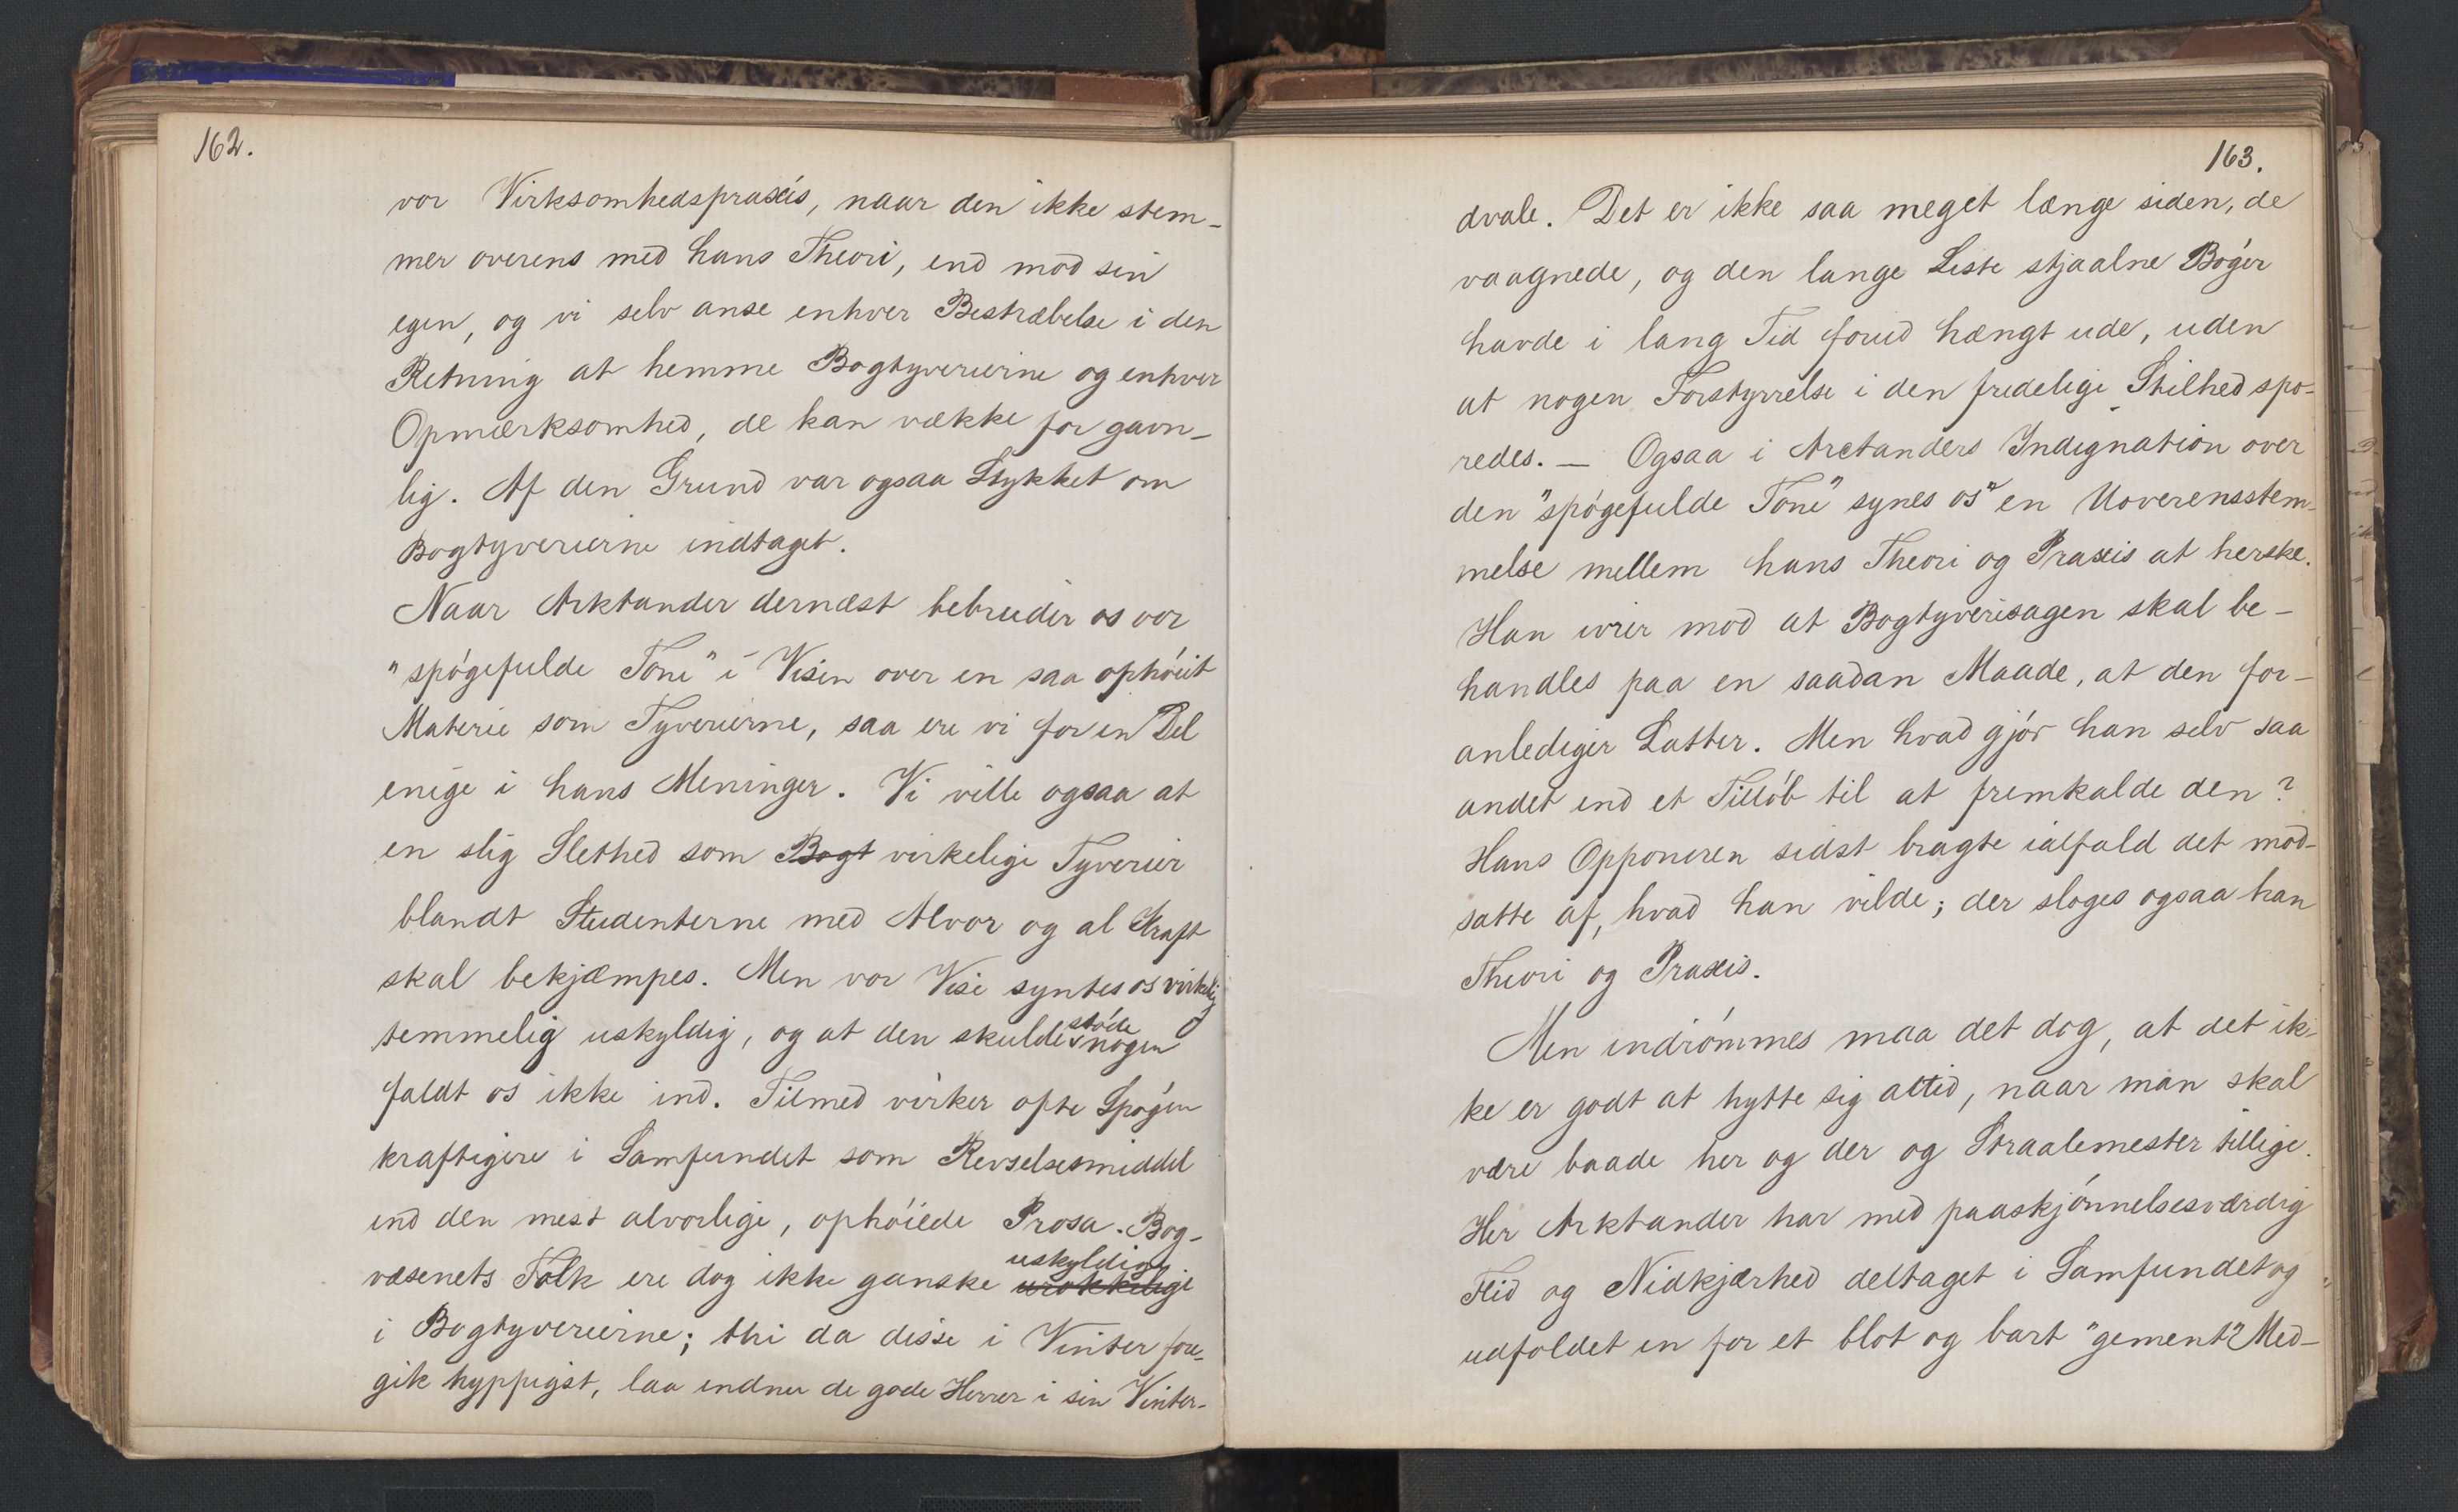 162.
vor Virksomhedspraxis, naar den ikke stem-
mer overens med hans Theori, end mod sin
egen, og vi selv anse enhver Bestræbelse i den
Retning at hemme Bogtyverierne og enhver
Opmærksomhed, de kan vække for gavn-
lig. Af den Grund var ogsaa Stykket om
Bogtyverierne indtaget.
Naar Arktander dernæst bebreider os vor
"spógefulde Tone" i Visen over en saa ophóiet
Materie som Tyverierne, saa ere vi for en Del
enige i hans Meninger. Vi ville ogsaa at
en slig Slethed som Bogt virkelige Tyverier
blandt Studenterne med Alvor og al Kraft
skal bekjæmpes. Men vor Vise syntes os virkelig
temmelig uskyldig, og at den skulde stóde nogen
faldt os ikke ind. Tilmed virker ofte Spógen
kraftigere i Samfundet som Revselsesmiddel
end den mest alvorlige, ophóiede Prosa. Bog-
væsenets Folk ere dog ikke ganske uskyldige
i Bogtyverierne; thi da disse i Vinter fore-
gik hyppigst, laa endnu de gode Herrer i sin Vinter-
163.
dvale. Det er ikke saa meget længe siden, de
vaagnede, og den lange Liste stjaalne Bóger
havde i lang Tid forud hængt ude, uden
at nogen Forstyrrelse i den fredelige Stilhed spo-
redes. — Ogsaa i Arctanders Indignation over
den "spógefulde Tone" synes os en Uoverensstem-
melse mellem hans Theori og Praxis at herske.
Han ivrer mod at Bogtyverisagen skal be-
handles paa en saadan Maade, at den for-
anlediger Latter. Men hvad gjór han selv saa
andet end et Tillób til at fremkalde den?
Hans Opponeren sidst bragte ialfald det mod-
satte af, hvad han vilde; der sloges ogsaa han
Theori og Praxis.
Men indrómmes maa det dog, at det ik-
ke er godt at hytte sig altid, naar man skal
være baade her og der og Straalemester tillige.
Her Arktander har med paaskjónnelsesværdig
Flid og Nidkjærhed deltaget i Samfundet og
udfoldet en for et blot og bart "gement" Med-